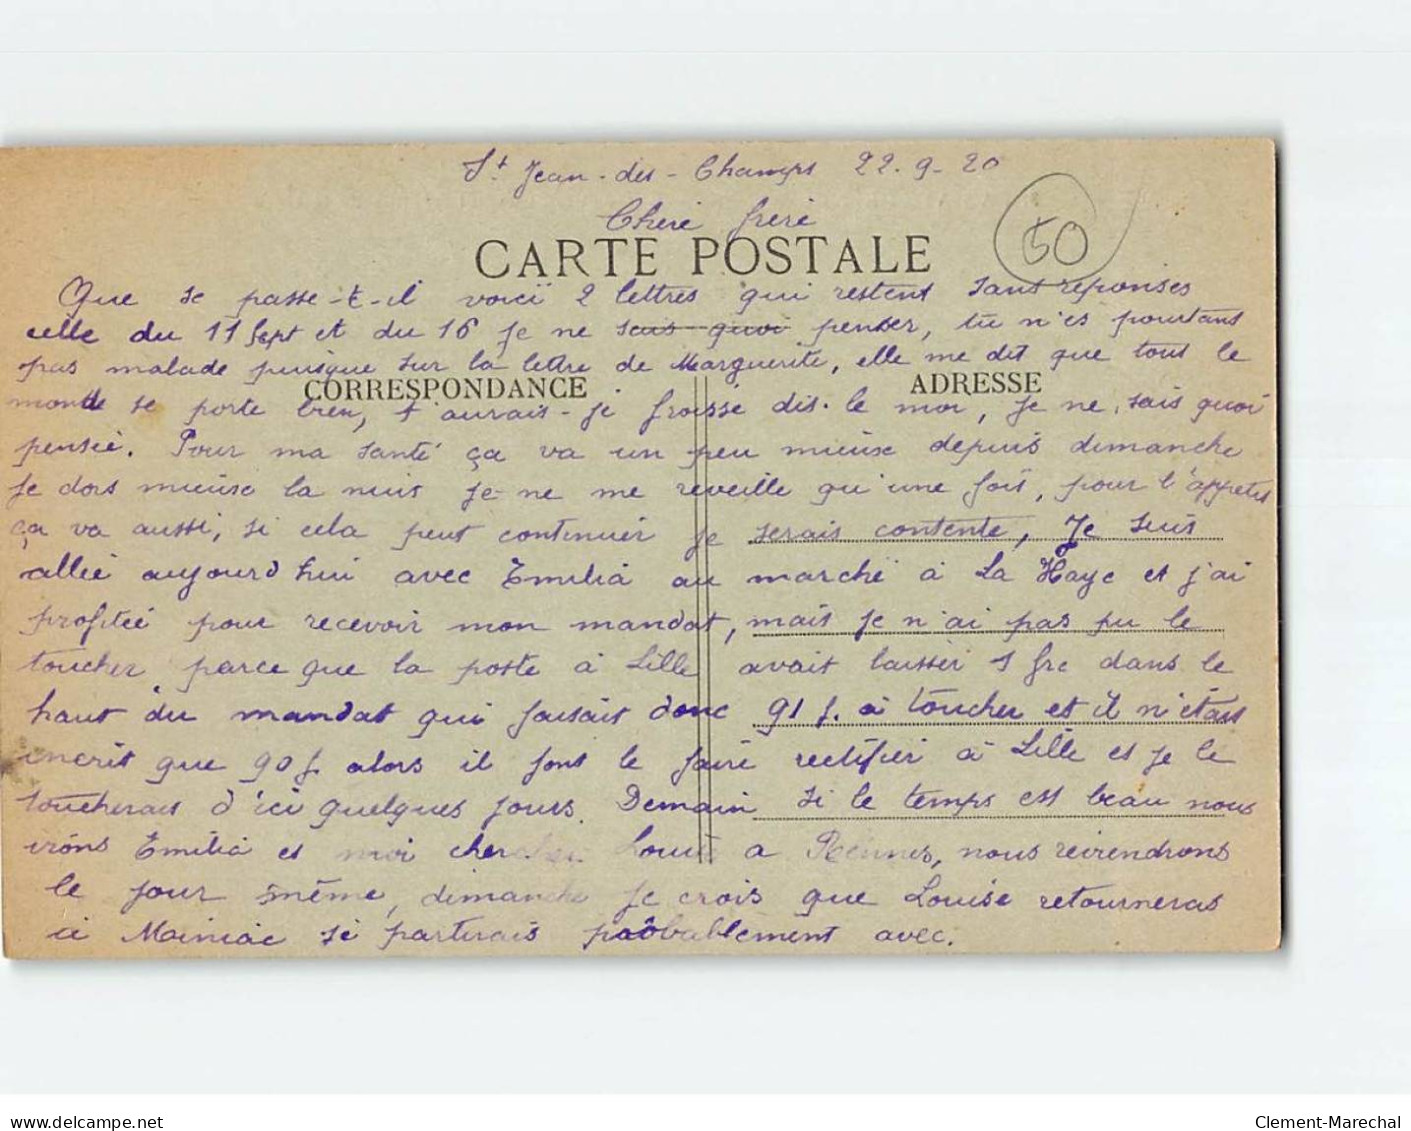 St Jean-des-Champs 22.9-20
Cheré freré
50
CARTE POSTALE
Que se passe-t-il voici 2 lettres qui restent sans reponses
celle du 11 Sept et du 16 je ne sais quoi penser, tu n'es pourtant
pas malade puisque sur la lettre de Marguerite, elle me dit que tout le
CORRESPONDANCE
ADRESSE
monde se porte bien, t'aurais-je froisse dis-le moi, je ne sais quoi
pensée. Pour ma santé ça va un peu mieux depuis dimanche
je dors mieux la nuit je ne me reveille qu'une fois, pour l'appetit
ça va aussi, si cela peut continuer je serais contente, Je suis
allée aujourd'hui avec Emilia au marché à La Haye et j'ai
profitée pour recevoir mon mandat, mais je n'ai pas pu le
toucher parce que la poste à Lille avait laisser 1 frc dans le
haut du mandat qui faisait donc 91 f. à toucher et il n'etait
inscrit que 90 f alors il font le faire rectifier à Lille et je le
toucherais d'ici quelques jours. Demain si le temps est beau nous
irons Emilia et moi chercher Louise a Rennes, nous reviendrons
le jour même, dimanche je crois que Louise retourneras
à Miniac je partirais probablement avec.
delcampe.net
Clement-Marechal